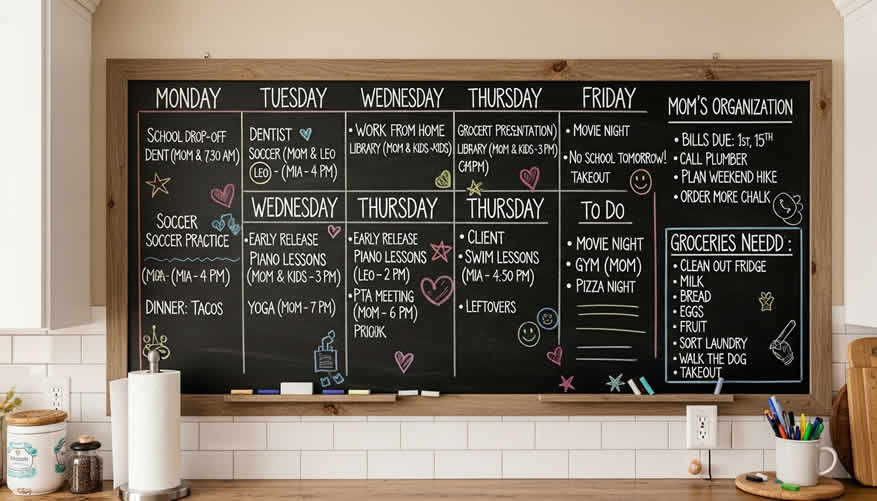 MONDAY
SCHOOL DROP-OFF
DENT (MOM & 7.30 AM)
SOCCER
SOCCER PRACTICE
(MIA - 4 PM)
DINNER: TACOS
TUESDAY
DENTIST
SOCCER (MOM & LEO
LEO - (MIA - 4 PM)
WEDNESDAY
• WORK FROM HOME
LIBRARY (MOM & KIDS -KIDS)
THURSDAY
GROCERT PRESENTATION)
LIBRARY (MOM & KIDS - 3 PM)
FRIDAY
• MOVIE NIGHT
• NO SCHOOL TOMORROW!
TAKEOUT
WEDNESDAY
• EARLY RELEASE
PIANO LESSONS
(MOM & KIDS - 3 PM)
YOGA (MOM - 7 PM)
THURSDAY
• EARLY RELEASE
PIANO LESSONS
(LEO - 2 PM)
• PTA MEETING
(MOM - 6 PM)
THURSDAY
• CLIENT
• SWIM LESSONS
(MIA - 4.50 PM)
• LEFTOVERS
TO DO
• MOVIE NIGHT
• GYM (MOM)
• PIZZA NIGHT
MOM'S ORGANIZATION
• BILLS DUE: 1ST, 15TH
• CALL PLUMBER
• PLAN WEEKEND HIKE
• ORDER MORE CHALK
GROCERIES NEEDD :
• CLEAN OUT FRIDGE
• MILK
• BREAD
• EGGS
• FRUIT
• SORT LAUNDRY
• WALK THE DOG
• TAKEOUT